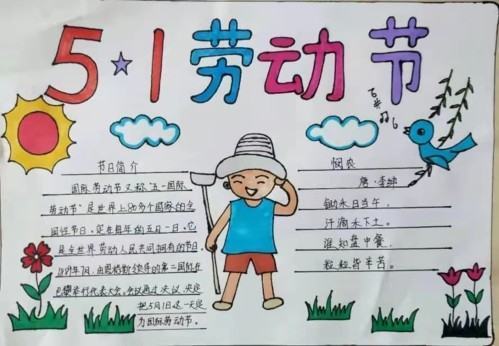 5★1劳动节
节日简介
国际劳动节又称"五一国际
劳动节"是世界上80多个国家的全
国性节日。定在每年的五月一日。它
是全世界劳动人民共同拥有的节日。
1889年7月,由恩格斯领导的第二国际在
巴黎举行代表大会。会议通过决议,决定
把5月1日这一天定
为国际劳动节。
悯农
唐·李绅
锄禾日当午,
汗滴禾下土。
谁知盘中餐,
粒粒皆辛苦。